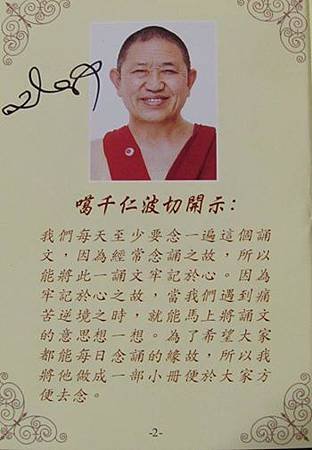 噶千仁波切開示：
我們每天至少要念一遍這個誦
文，因為經常念誦之故，所以
能將此一誦文牢記於心。因為
牢記於心之故，當我們遇到痛
苦逆境之時，就能馬上將誦文
的意思想一想。為了希望大家
都能每日念誦的緣故，所以我
將他做成一部小冊便於大家方
便去念。
-2-